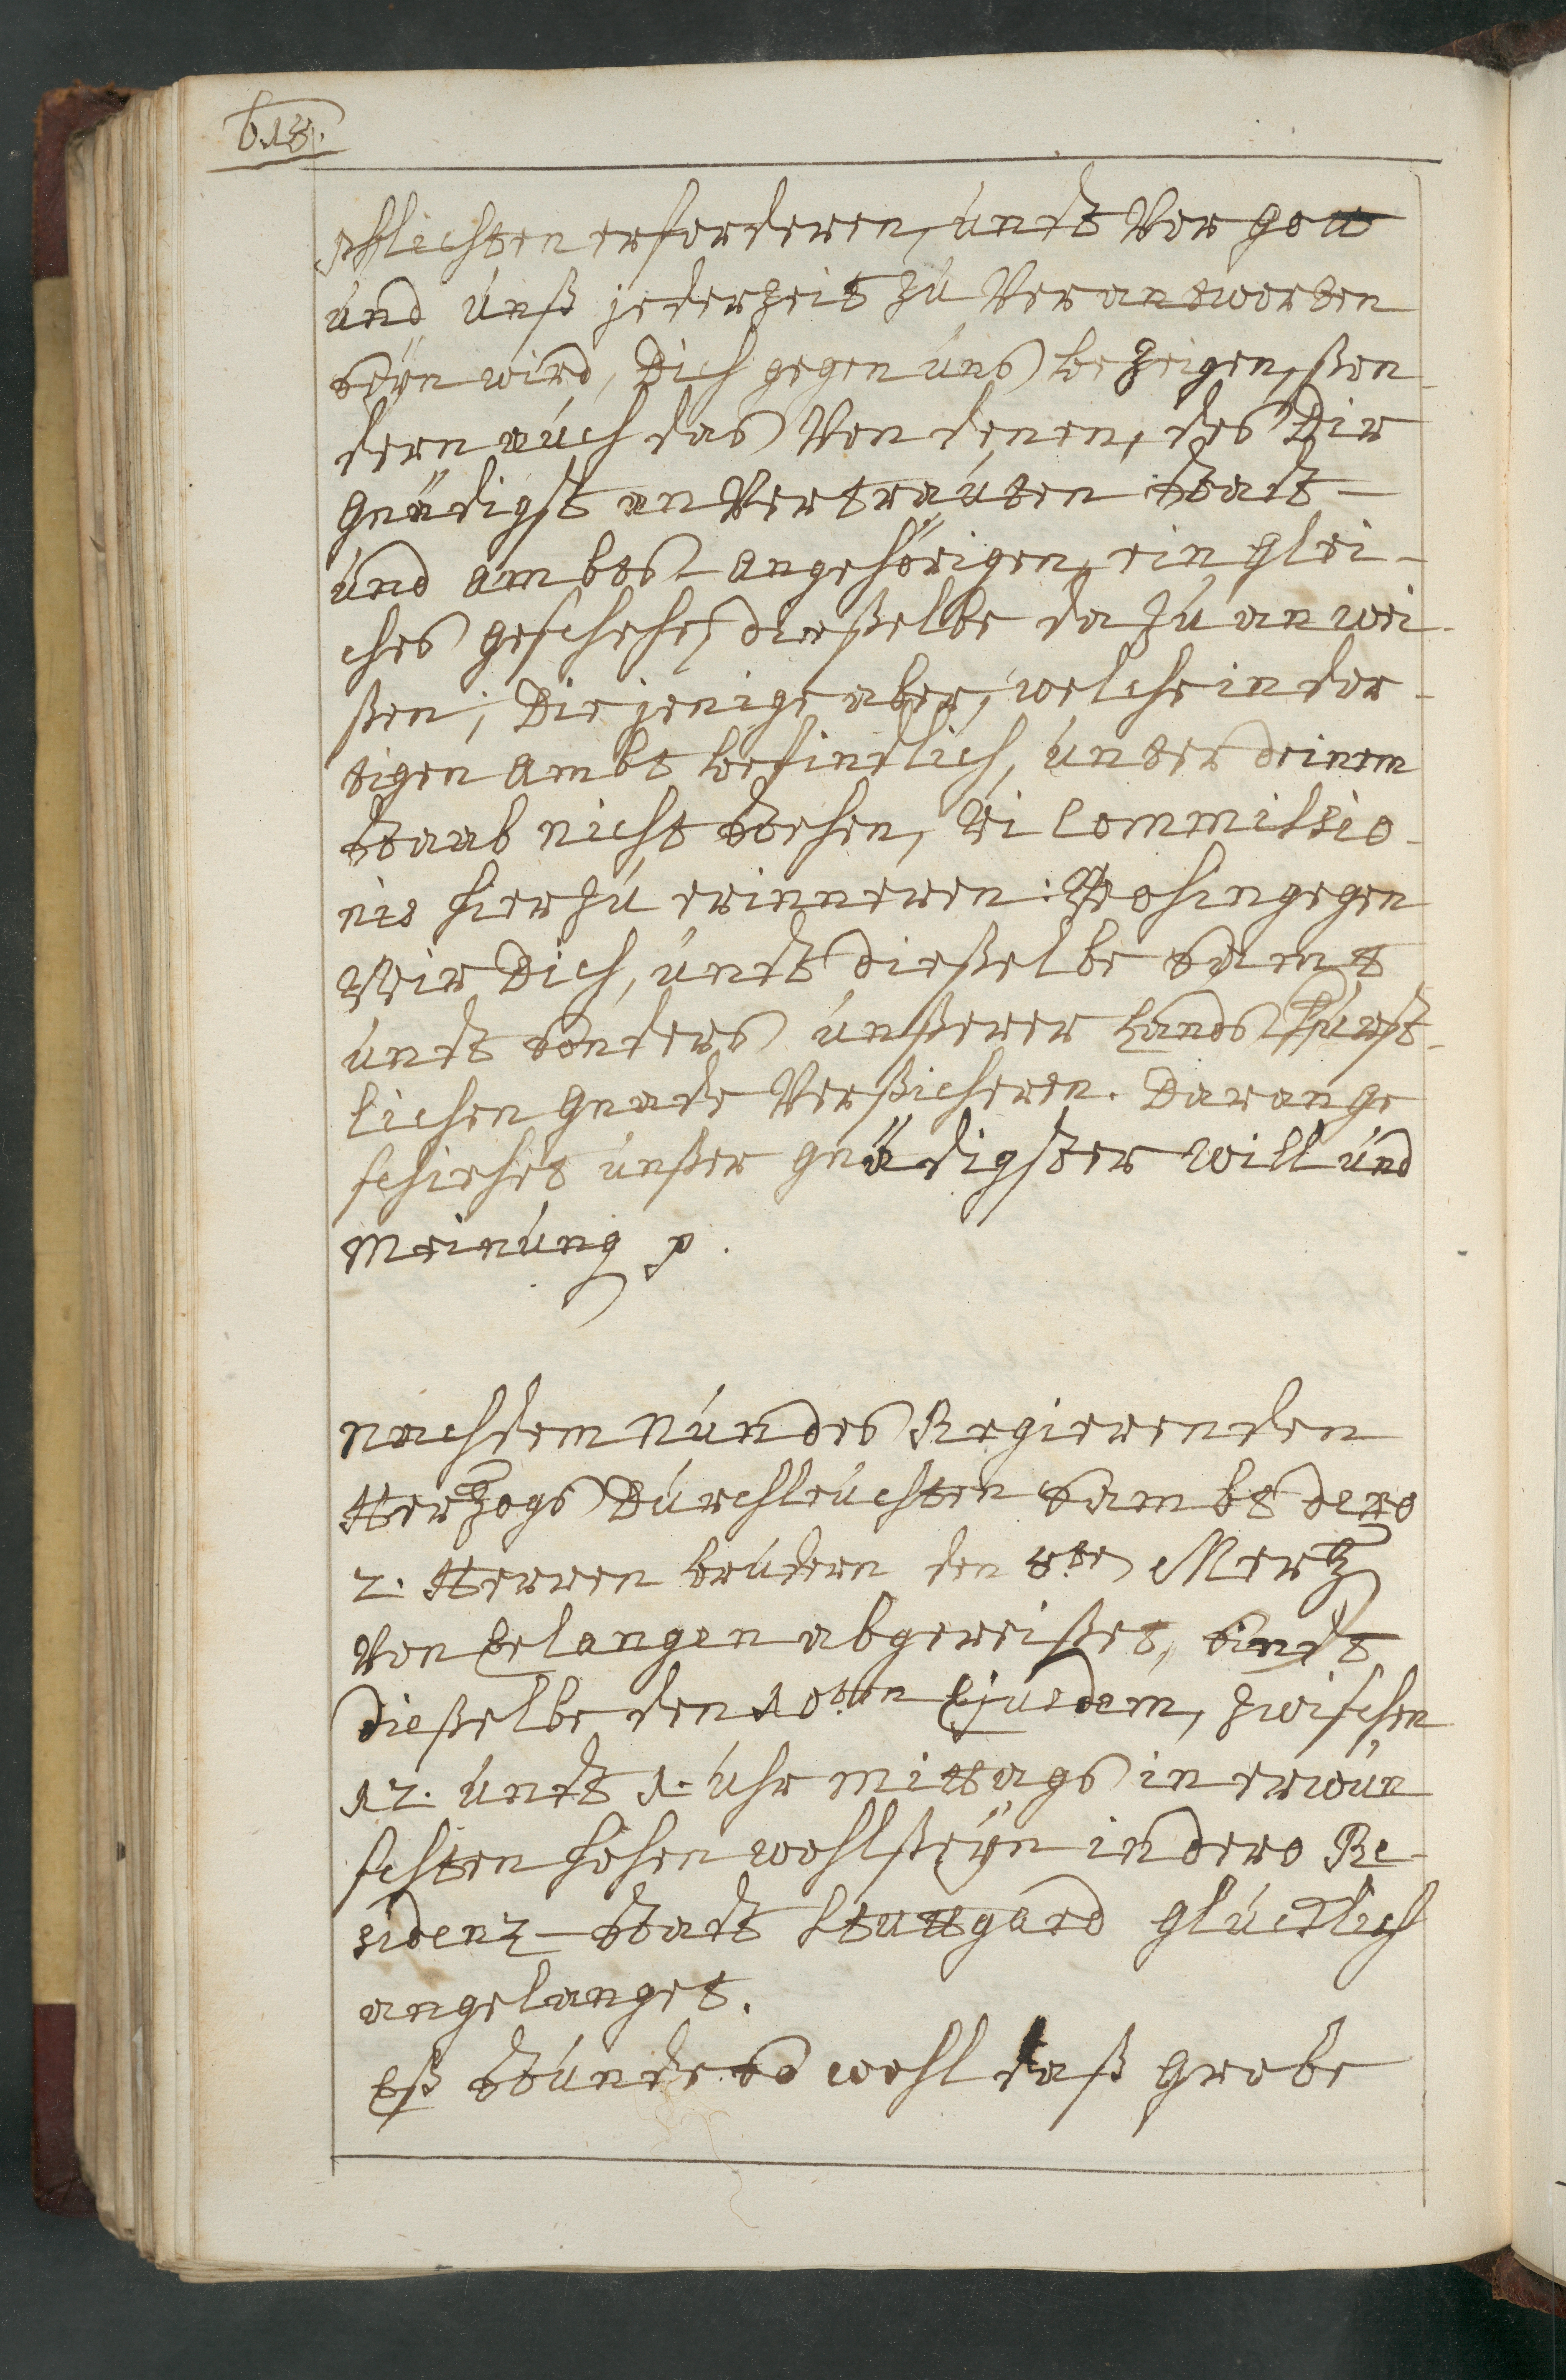 618.
pflichten erforderen, undt Vor Gott
und Unß jederzeit zu Verantworten
seÿn wird, Dich gegen Uns bezeigen, son-
dern auch das Von denen, des Dir
Gnädigst an Vertrauten Statt-
und Ambts angehörigen, ein glei-
ches geschehe, dießelbe dazu anwei-
ßen; Diejenige aber, welche in dor-
tigen Ambt befindlich, unter deinem
Staab nicht stehen, Vi Commissio-
nis hierzu erinneren: Wohingegen
Wir Dich, undt dießelbe samt
undt sonders unßerer Lands Fürst-
lichen Gnade Versicheren. Daran ge
schiehet unßer gnädigster Will und
Meinung p.
Nachdem Nun des Regierenden
Hertzogs Durchleuchten sambt dero
2. Herren brudern den 8ten Mertz
Von Belangen abgereißet, sindt
dießelbe den 10ten Ejusdem, zwischen
12. undt 1. Uhr Mittags in erwün
schten hohen wohlseÿn in dero Re-
sidenz-Statt Stuttgard glücklich
angelanget.
Eß stunde so wohl daß Grobe